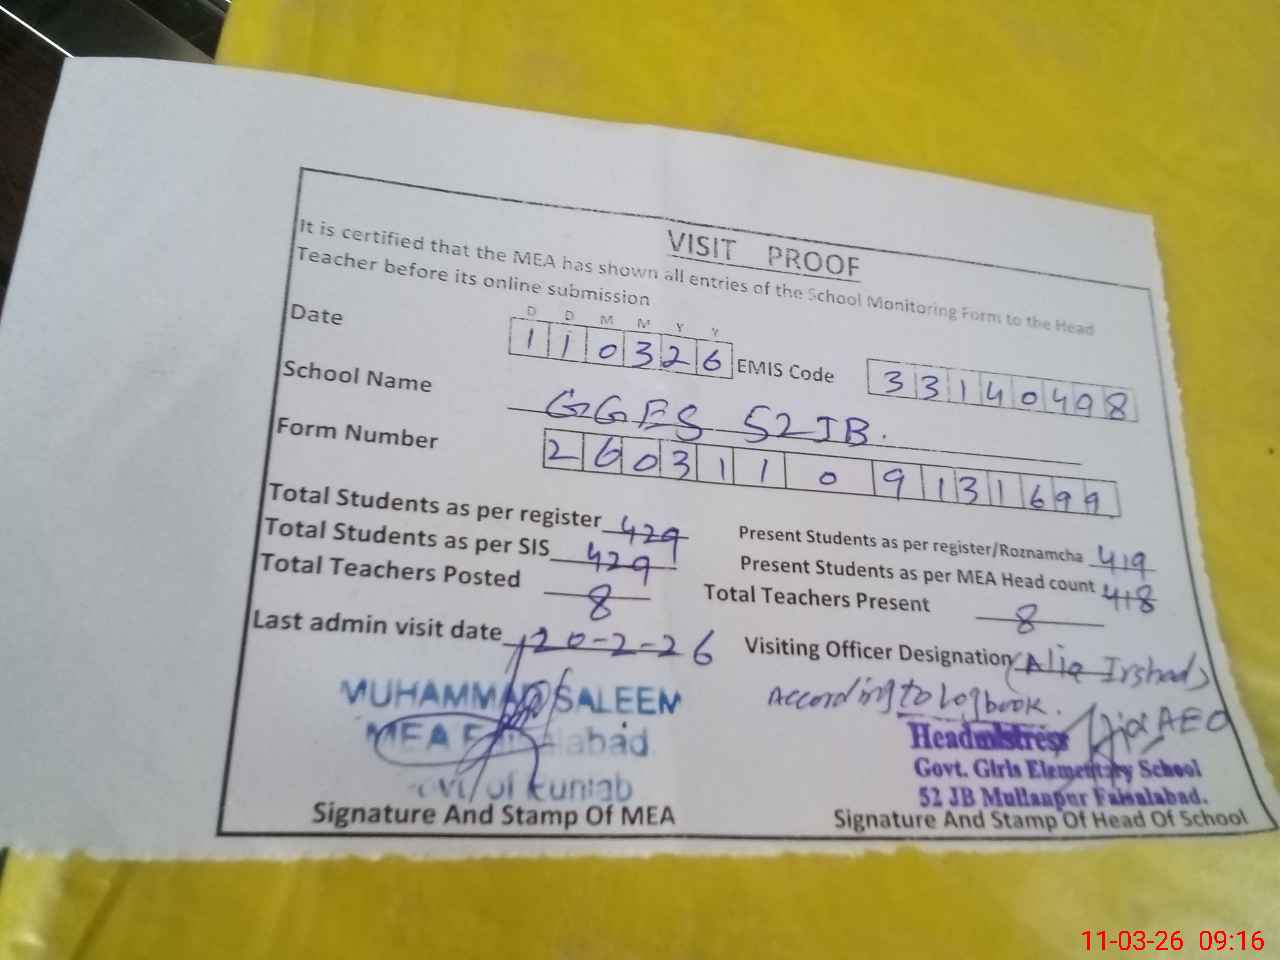 VISIT PROOF
It is certified that the MEA has shown all entries of the School Monitoring Form to the Head
Teacher before its online submission
D D M M Y Y
Date 110326 EMIS Code 33140498
School Name GGES 52JB.
Form Number 26031109131699
Total Students as per register 429 Present Students as per register/Roznamcha 419
Total Students as per SIS 429 Present Students as per MEA Head count 418
Total Teachers Posted 8 Total Teachers Present 8
Last admin visit date 20-2-26 Visiting Officer Designation (Alia Irshad)
According to Logbook. AEO
MUHAMMAD SALEEM
MEA Faisalabad
Govt. of Punjab
Headmistress
Govt. Girls Elementary School
52 JB Mullanpur Faisalabad.
Signature And Stamp Of MEA Signature And Stamp Of Head Of School
11-03-26 09:16